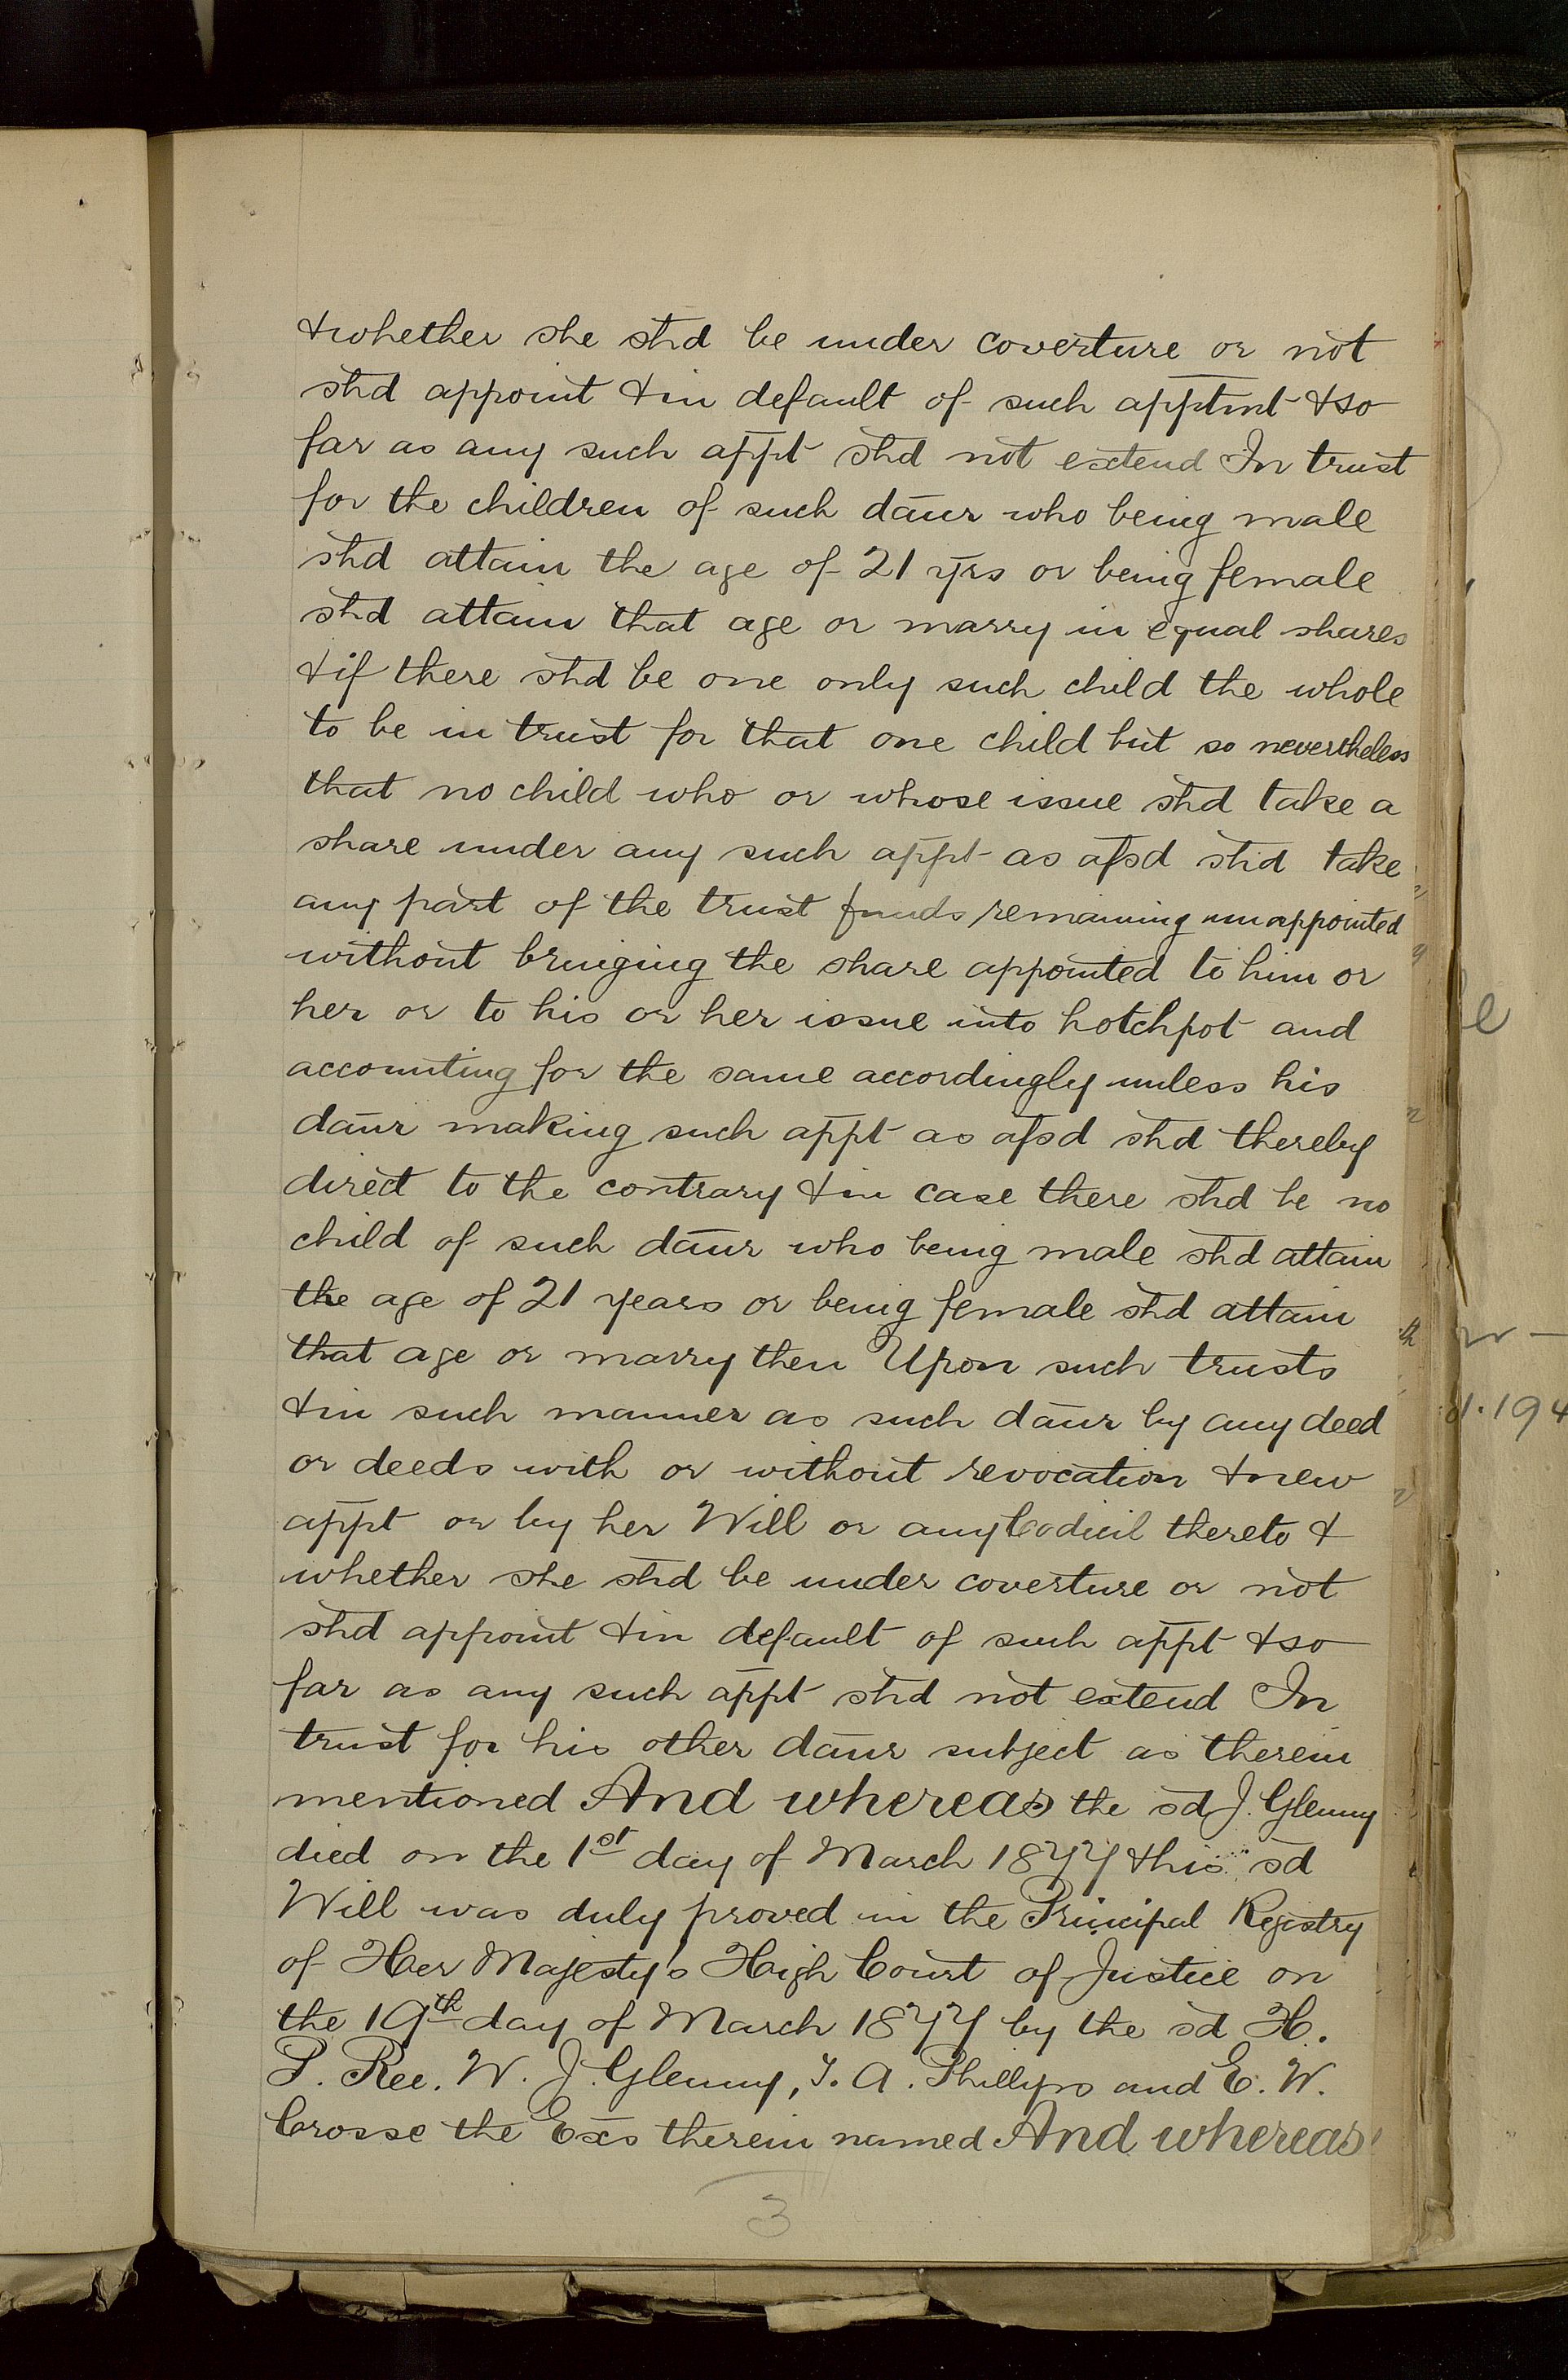 & whether she shd be under coverture or not
shd appoint & in default of such apptmt & so
far as any such appt shd not extend In trust
for the children of such daur who being male
shd attain the age of 21 yrs or being female
shd attain that age or marry in equal shares
& if there shd be one only such child the whole
to be in trust for that one child but so nevertheless
that no child who or whose issue shd take a
share under any such appt as afsd shd take
any part of the trust funds remaining unappointed
without bringing the share appointed to him or
her or to his or her issue into hotchpot and
accounting for the same accordingly unless his
daur making such appt as afsd shd thereby
direct to the contrary & in case there shd be no
child of such daur who being male shd attain
the age of 21 years or being female shd attain
that age or marry then Upon such trusts
& in such manner as such daur by any deed
or deeds with or without revocation & new
appt or by her Will or any Codicil thereto &
whether she shd be under coverture or not
shd appoint & in default of such appt & so
far as any such appt shd not extend In
trust for his other daur subject as therein
mentioned And whereas the sd J. Glenny
died on the 1st day of March 1877 & his sd
Will was duly proved in the Principal Registry
of Her Majesty's High Court of Justice on
the 19th day of March 1877 by the sd H.
P. Ree. W. J. Glenny, T. A. Phillyps and E. W.
Crosse the Exs therein named And whereas
3